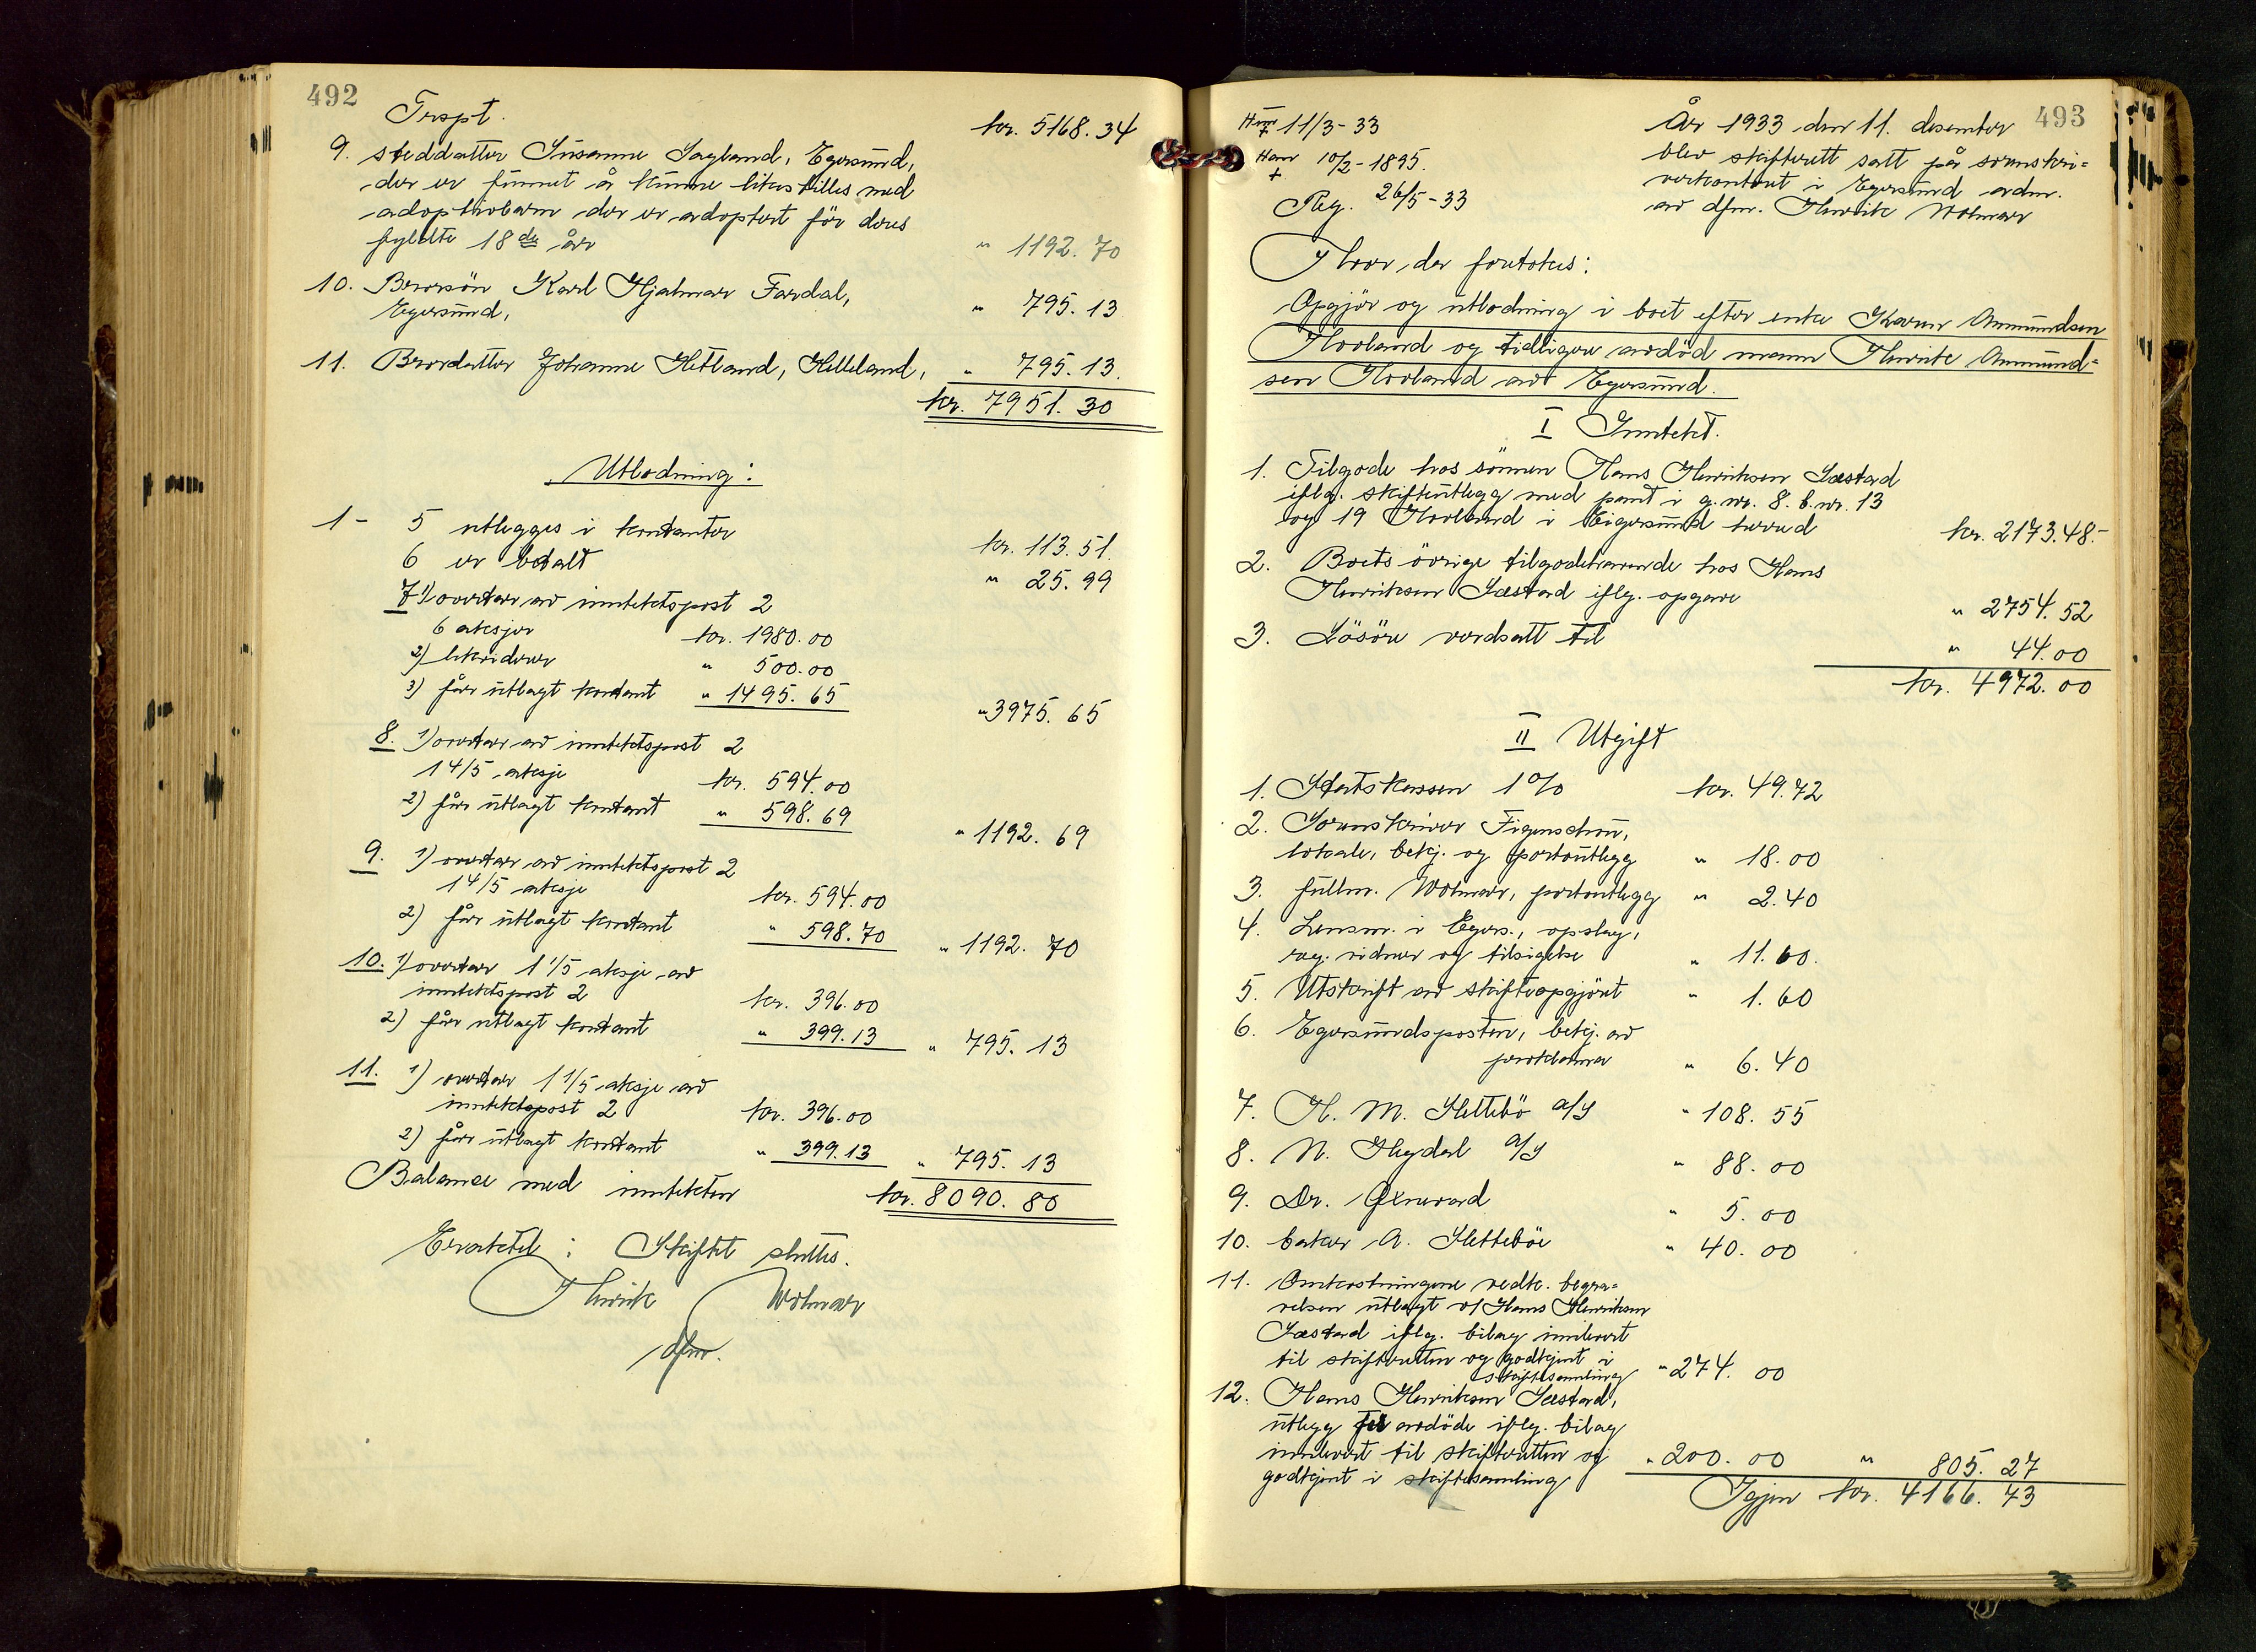 492
Trspt. kr. 5168.34
9. steddatter Susanne Sagland, Egersund,
der er funnet å kunne likestilles med
adoptivbarn der er adoptert før deres
fyldte 18de år " 1192.70
10. Brorsön Karl Hjalmar Fardal,
Egersund, " 795.13
11. Brordatter Johanne Hetland, Helleland, " 795.13.
kr. 7951.30
Utlodning:
1 - 5 utlegges i kontanter kr. 113.51.
6 er betalt " 25.99
7 1) overtar av inntektspost 2
6 aksjer kr. 1980.00
2) likviderer " 500.00
3) får utlagt kontant " 1495.65 " 3975.65
8. 1) overtar av inntektspost 2
1 4/5 aksje kr. 594.00
2) får utlagt kontant " 598.69 " 1192.69
9. 1) overtar av inntektspost 2
1 4/5 aksje kr. 594.00
2) får utlagt kontant " 598.70 " 1192.70
10. 1) overtar 1 1/5 aksje av
inntektspost 2 kr. 396.00
2) får utlagt kontant " 399.13 " 795.13
11. 1) overtar 1 1/5 aksje av
inntektspost 2 kr. 396.00
2) får utlagt kontant " 399.13 " 795.13
Balanse med inntekten kr. 8090.80
Skiftet sluttes.
Henrik Wolmar
dfm.
493
11/3-33
Han + 10/2-1895.
Reg. 26/5-33
År 1933 den 11. desember
blev skifterett satt på sorenskri=
verkontoret i Egersund adm.
av dfm. Henrik Wolmar
Hvor der foretokes:
Opgjör og utlodning i boet efter enke Karen Aanmundsen
Hovland og tidligere avdöd mann Henrik Aanmund=
sen Hovland av Egersund.
I Inntekt.
1. Tilgode hos sönnen Hans Henriksen Sæstad
iflg. skifteutlegg med pant i g.nr. 8. b.nr. 13
og 19 Hovland i Eigersund herred kr. 2173.48.-
2. Boets övrige tilgodehavende hos Hans
Henriksen Sæstad iflg. opgave " 2754.52
3. Lösöre verdsatt til " 44.00
kr. 4972.00
II Utgift
1. Statskassen 1% kr. 49.72
2. Sorenskriver Figenschou,
lokale, bekj. og portoutlegg " 18.00
3. fullm. Wolmar, portoutlegg " 2.40
4. Lensm. i Egers., opslag,
reg. vidner og tilsigelse " 11.60.
5. Utskrift av skifteopgjöret " 1.60
6. Egersundsposten, bekj. av
proklama " 6.40
7. H. M. Slettebö a/s " 108.55
8. N. Hegdal a/s " 88.00
9. Dr. Oxnevad " 5.00
10. baker A. Slettebö " 40.00
11. Omkostningene vedk. begra=
velsen utlagt v/ Hans Henriksen
Sæstad iflg. bilag innlevert
til skifteretten og godkjent i
skiftesamling " 274.00
12. Hans Henriksen Sæstad,
utlegg for avdöde iflg. bilag
innlevert til skifteretten og
godkjent i skiftesamling " 200.00 " 805.27
Igjen kr. 4166.73